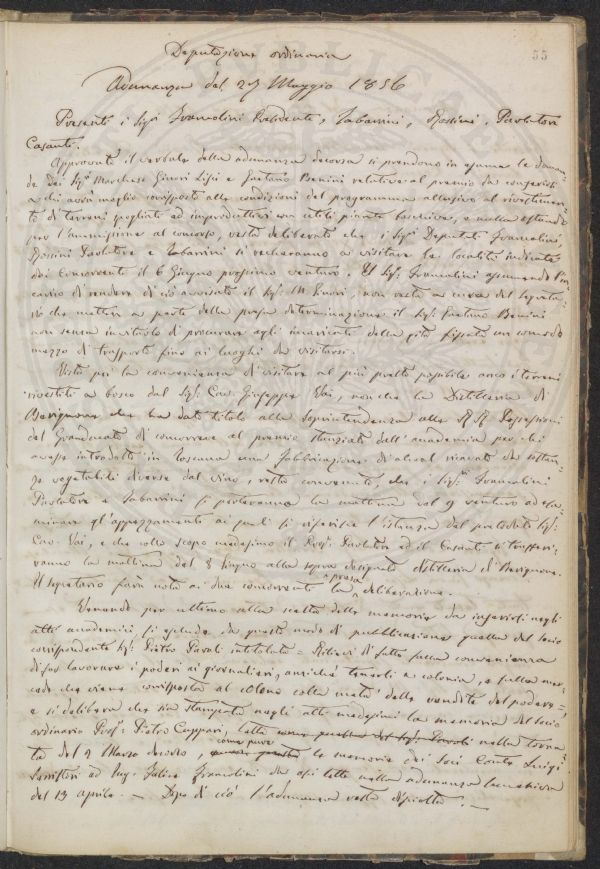 55
Deputazione ordinaria
Adunanza del 27 Maggio 1856
Presenti i Sigri Franceolini Presidente, Tabarrini, Rossini, Paolatore
Casanti.
Approvato il verbale della adunanza decorsa si prendono in esame le diman
de dei Sigri Marchese Ginori Lisci e Gaetano Bonini relative al premio da conferirsi
a chi avrà meglio corrisposto alle condizioni del programma allusivo al rivestimen
to di terreni spogliati ed improduttivi con utili piante boschive, e nulla ostando
per l'ammissione al concorso, resta deliberato che i Sigri Deputati
Rossini e Tabarrini si recheranno a visitare le località indicate
dai concorrenti il 6 Giugno prossimo venturo. Il Sigr assumendo l'in
carico di rendere di ciò avvisato il Sigr M Ginori, non resta a cura del segreta
rio che mettere a parte della presa determinazione il Sigr Gaetano Bonini
non senza invitarlo di procurare agli incaricati della gita fissata un comodo
mezzo di trasporto fino ai luoghi da visitarsi.
Vista poi la convenienza di visitare al più presto possibile anco i terreni
rivestiti a bosco dal Sigr Cav. Giuseppe Vai, nonchè la Distilleria di
che ha dato titolo alla Soprintendenza alle RR Possessioni
del Granducato di concorrere al premio stanziato dall'accademia per chi
avesse introdotto in Toscana una fabbricazione di alcool ricavato da sostan
ze vegetabili diverse dal vino, resta convenuto, che i Sigri
e Tabarrini si porteranno la mattina del 9 venturo ad esa
minare gl'appezzamenti ai quali si riferisce l'istanza del prelodato Sigr
Cav. Vai, e che collo scopo medesimo il Profr ed il Casanti si trasferi
ranno la mattina del 8 Giugno alla sopra designata distilleria di
Il segretario farà nota ai due concorrenti la presa deliberazione.
Venendo per ultimo alla scelta delle memorie da inserirsi negli
atti accademici, si esclude da questo modo di pubblicazione quella del socio
corrispondente Sigr Pietro intitolata = Rilievi di fatto sulla convenienza
di far lavorare i poderi ai giornalieri, anzichè tenerli a colonia, e sulla mer
cede che viene corrisposta al colono colla metà delle vendite del podere =,
e si delibera che sia stampata negli atti medesimi la memoria del socio
ordinario Profr Pietro Cuppari, letta nella torna
ta del 9 Marzo decorso, come pure le memorie dei Soci Conte Luigi
Serristori ed Ing. Felice Francolini da essi lette nella adunanza
del 13 aprile. — Dopo di ciò l'adunanza resta disciolta. —